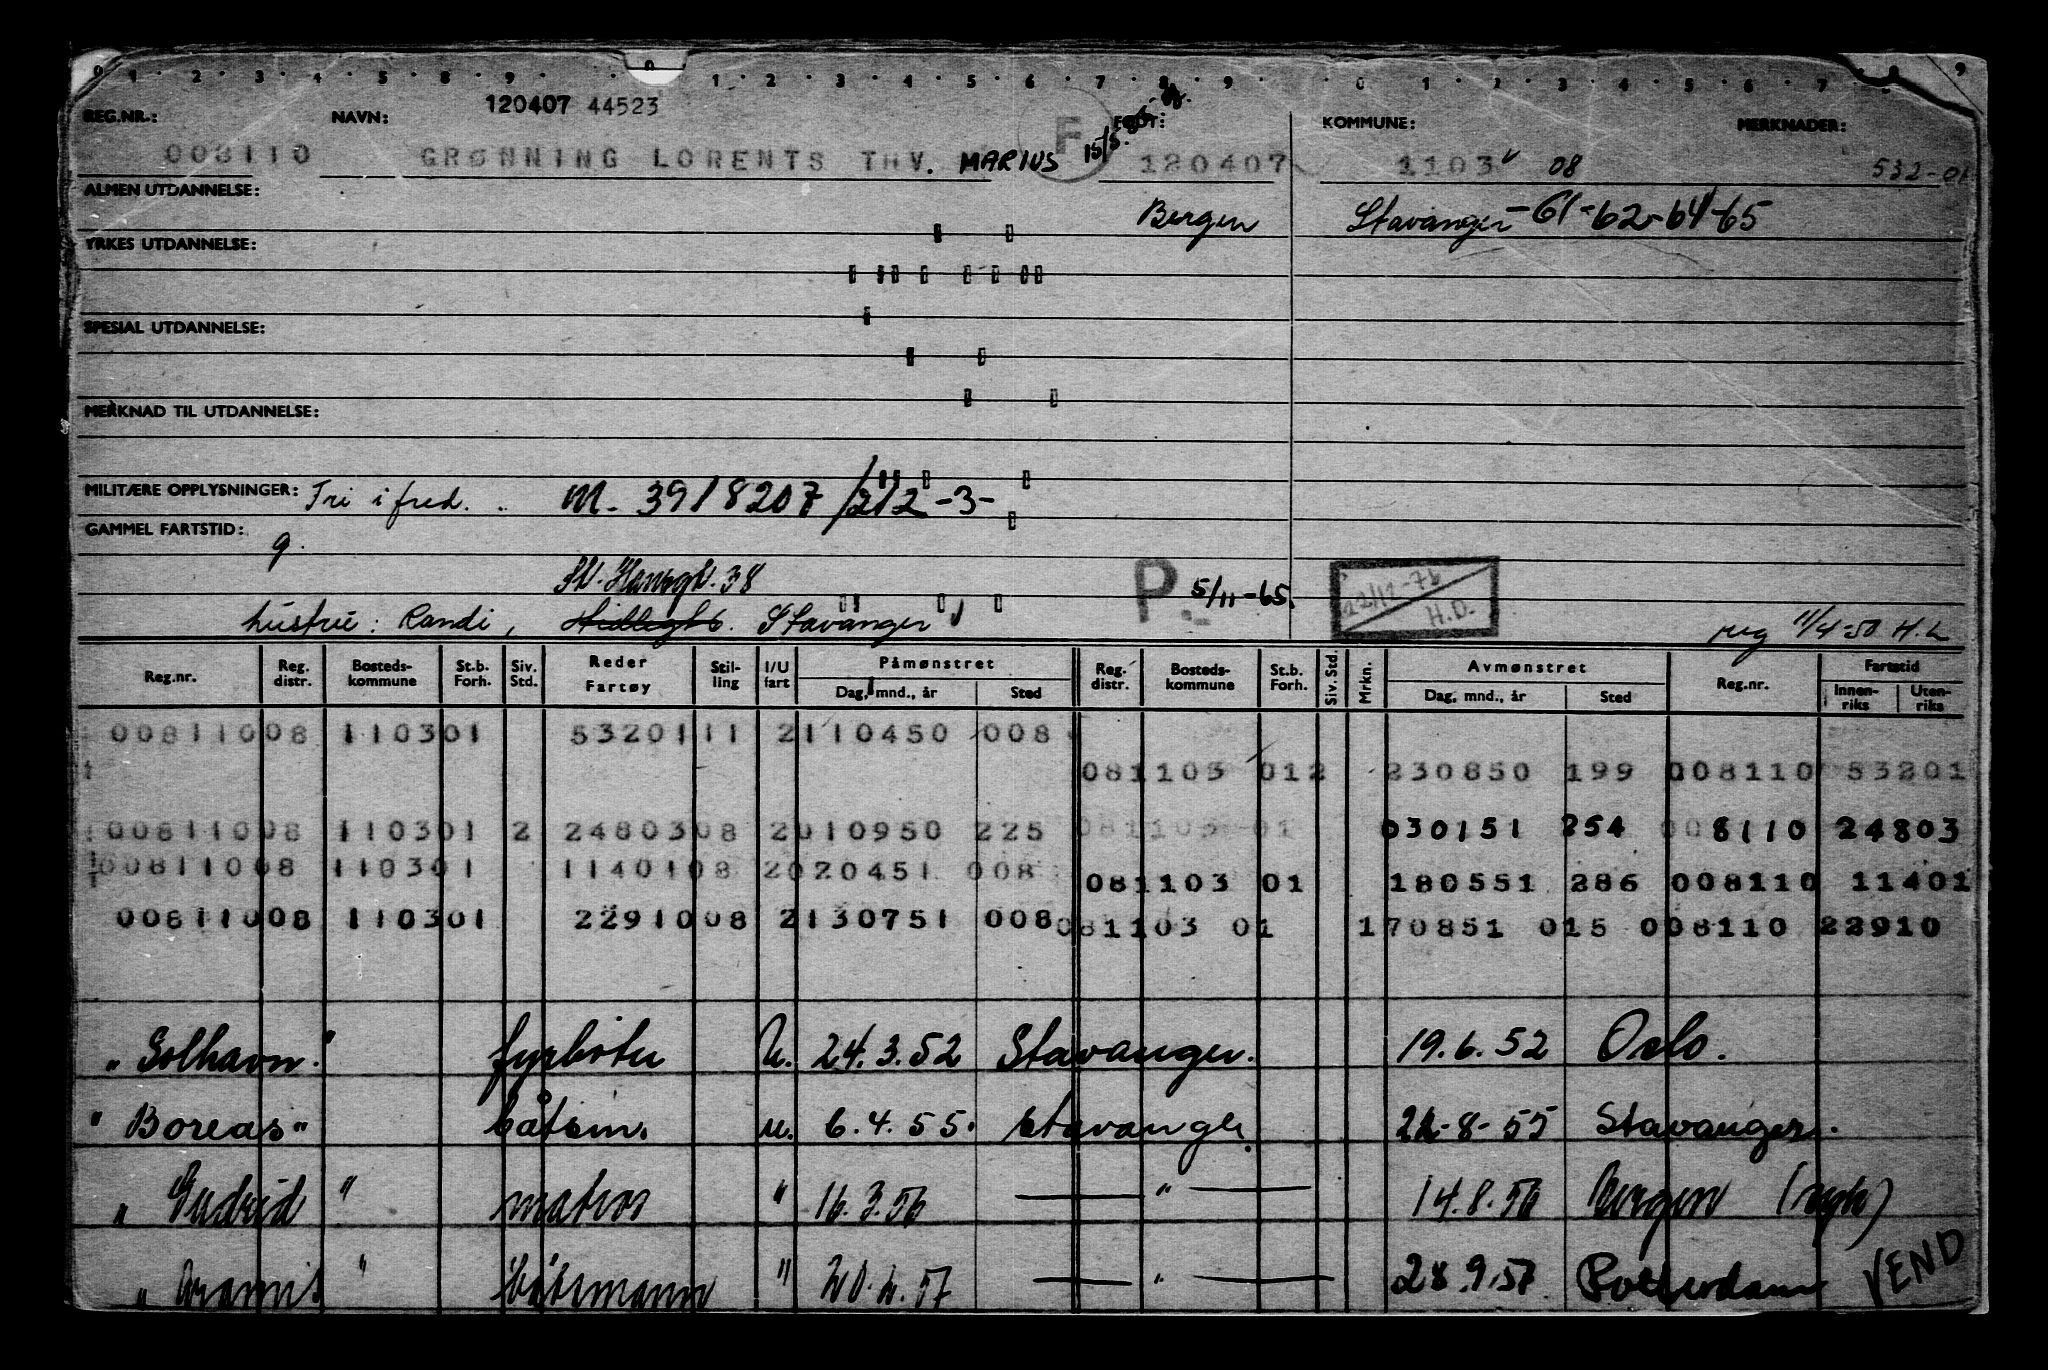 0 1 2 3 4 5 8 9 0 1 2 3 4 5 6 7 8 9 0 1 2 3 4 5 6 7 8 9
120407 44523
REG.NR.: NAVN: FØDT: KOMMUNE: MERKNADER:
008110 GRØNNING LORENTS THV. MARIUS F 120407 1103 08 532-01
ALMEN UTDANNELSE: Bergen Stavanger -61-62-64-65
YRKES UTDANNELSE:
SPESIAL UTDANNELSE:
MERKNAD TIL UTDANNELSE:
MILITÆRE OPPLYSNINGER: Tri i fred. M. 3918207/212-3-
GAMMEL FARTSTID: g.
St. Hansgt. 38 P. 5/11-65. 22/12-76 H.D.
hustru: Randi, Stavanger reg 11/4-50 H.L
Reg.nr. Reg. distr. Bosteds-kommune St.b. Forh. Siv. Std. Reder Fartøy Stil-ling I/U fart Påmønstret Dag, mnd., år Sted Reg. distr. Bosteds-kommune St.b. Forh. Siv. Std. Mrkn. Avmønstret Dag, mnd., år Sted Reg.nr. Fartstid Innen-riks Uten-riks
00811008 110301 5320111 2110450 008
081103 012 230850 199 008110 53201
00811008 110301 2 2480308 2010950 225 081103 01 030151 254 008110 24803
00811008 110301 1140108 2020451 008 081103 01 180551 286 008110 11401
00811008 110301 2291008 2130751 008 081103 01 170851 015 008110 22910
"Solhavn." fyrbøter U. 24.3.52 Stavanger. 19.6.52 Oslo.
"Boreas" båtsm. u. 6.4.55. Stavanger. 22-8-55 Stavanger.
"Gudrid" matros " 16.3.56 — " — 14.8.56 Bergen (syk)
"Aramis" båtsmann " 20.4.57 — " — 28.9.57 Rotterdam VEND